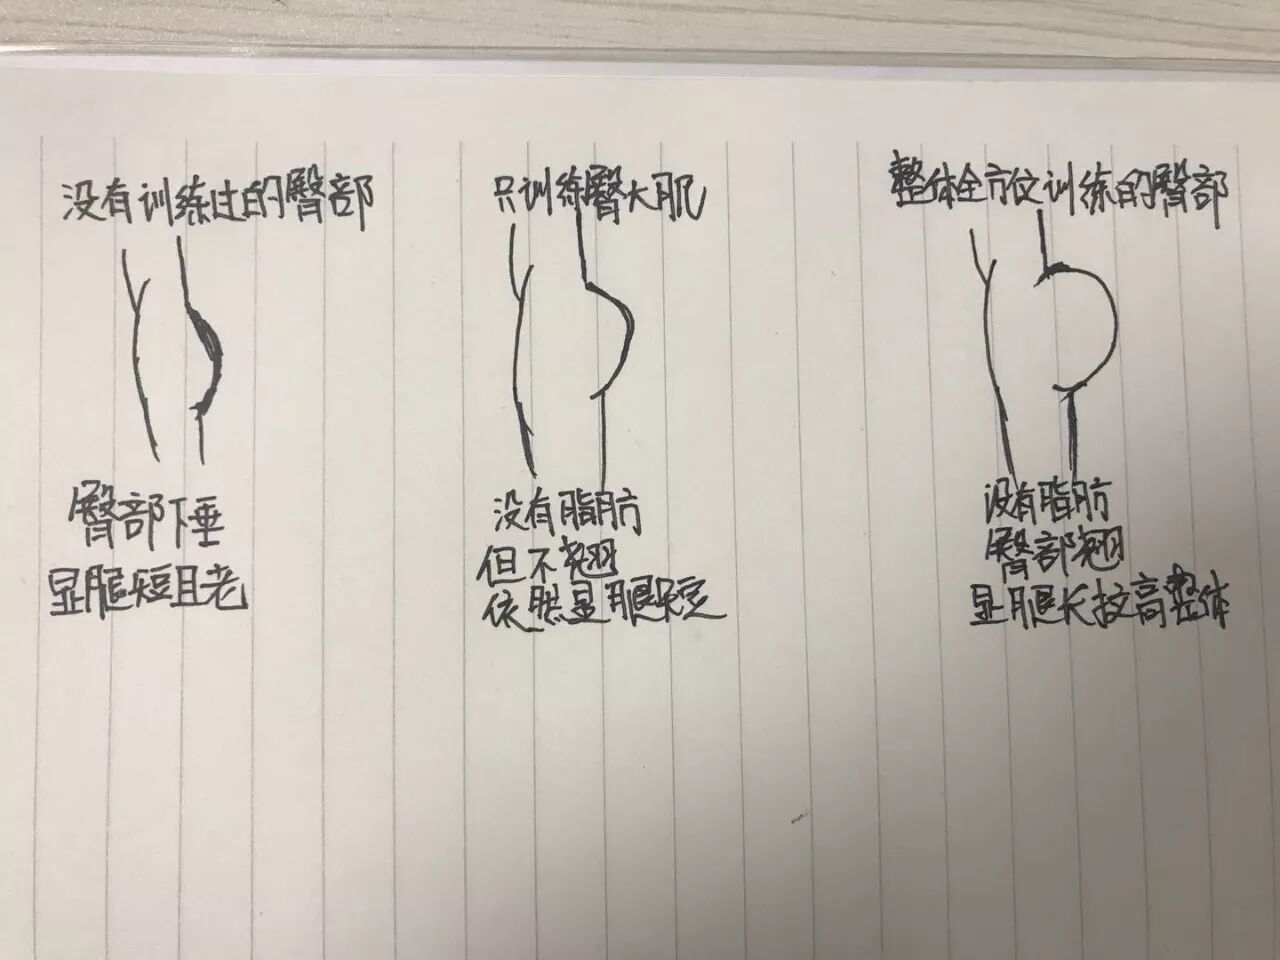 没有训练过的臀部
臀部下垂
显腿短且老
只训练臀大肌
没有脂肪
但不翘
依然显腿短
整体全方位训练的臀部
没有脂肪
臀部翘
显腿长拉高整体